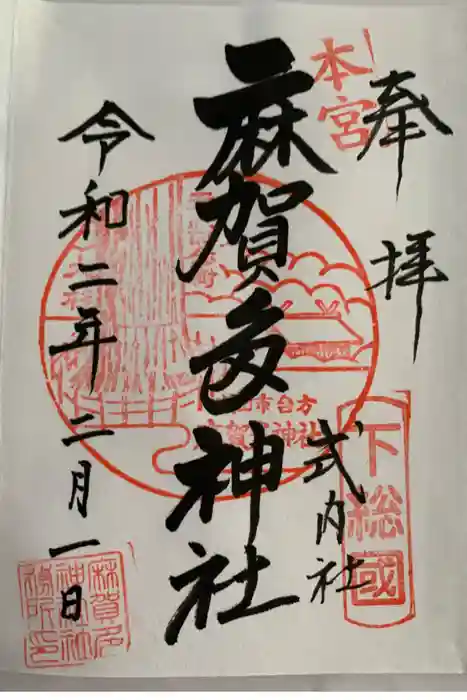 奉拝
本宮
下総國
式内社
麻賀多神社
成田市台方
麻賀多神社
令和二年二月一日
麻賀多神社社務所印